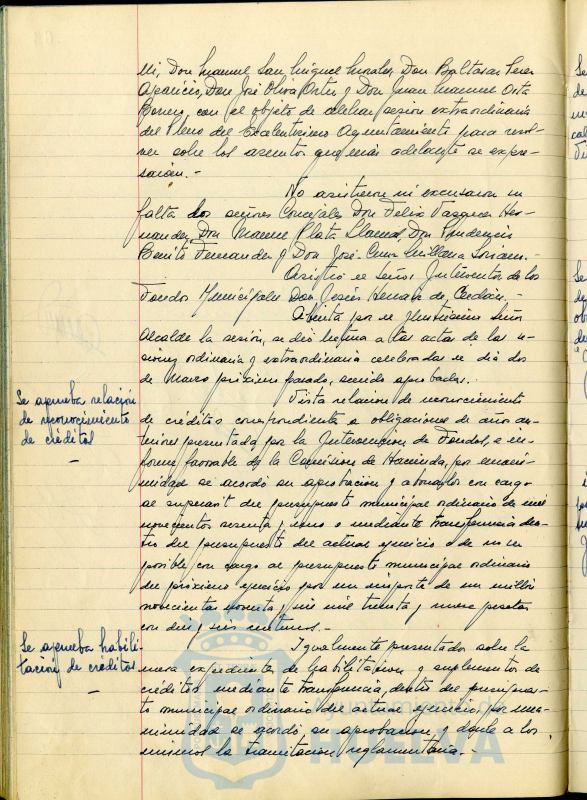 Mi, Don Manuel San Miguel Morales, Don Baltasar Perez
Aparicio, Don José Oliva Orta y Don Juan Manuel Orta
Borrero, con el objeto de celebrar sesión extraordinaria
del Pleno del Excelentísimo Ayuntamiento para resol-
ver sobre los asuntos que más adelante se expre-
saran.-
No asistieron ni excusaron su
falta los señores Concejales Don Felix Vazquez Her-
nandez, Don Manuel Plata Llamas, Don Prudencio
Benito Fernandez y Don José Soriano.-
Asistió el Señor Interventor de los
Fondos Municipales Don Jesús Hervas de Cerdán.-
Abierta por el Ilustrísimo Señor
Alcalde la sesión, se dió lectura a las actas de las se-
siones ordinaria y extraordinaria celebradas el día dos
de Marzo próximo pasado, siendo aprobadas.-
Se aprueba relación
de reconocimiento
de créditos
Vista relación de reconocimiento
de créditos correspondiente a obligaciones de años an-
teriores presentada por la Intervención de Fondos, e in-
forme favorable de la Comisión de Hacienda, por unani-
midad se acordó su aprobación y abonarlos con cargo
al superavit del presupuesto municipal ordinario de mil
novecientos sesenta y uno o mediante transferencia den-
tro del presupuesto del actual ejercicio o de no ser
posible con cargo al presupuesto municipal ordinario
del próximo ejercicio por un importe de un millón
novecientas noventa y seis mil treinta y nueve pesetas
con diez y seis centimos.-
Se aprueba habili-
tación de créditos
Igualmente presentados sobre la
mesa expediente de habilitacion y suplementos de
créditos mediante transferencia, dentro del presupues-
to municipal ordinario del actual ejercicio, por una-
nimidad se acordó su aprobacion, y dársele a los
mismos la tramitacion reglamentaria.-
Ayuntamiento de
HUELVA